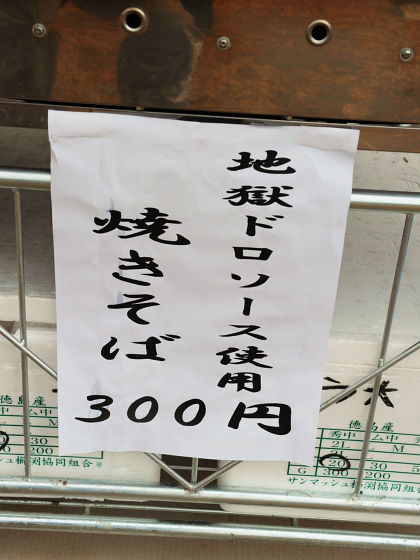 地獄ドロソース使用
焼きそば
300円
徳島産
中 ム中
L M
30
200 200
マッシュ櫛渕協同組合
徳島産
秀中 ム中
2L L
20 30 5
G 300 200
サンマッシュ櫛渕協同組合